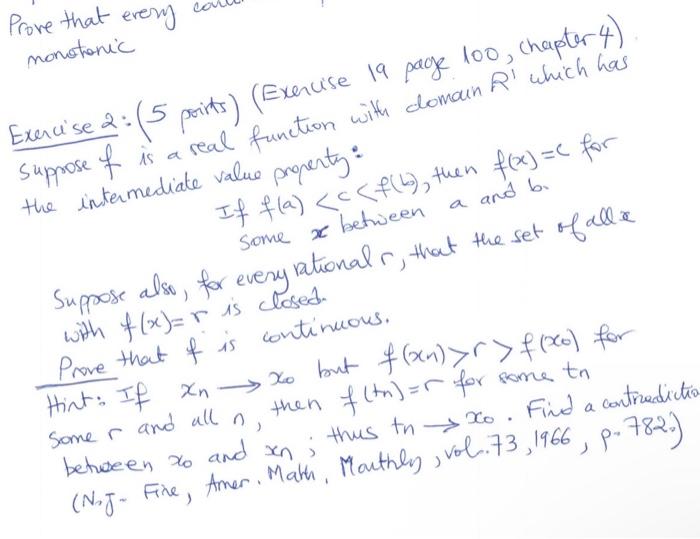 Prove that every
monotonic
Exercise 2: (5 points) (Exercise 19 page 100, chapter 4)
Suppose f is a real function with domain R¹ which has
the intermediate value property:
If f(a) < c < f(b), then f(x) = c for
some x between a and b.
Suppose also, for every rational r, that the set of all x
with f(x) = r is closed.
Prove that f is continuous.
Hint: If xn → x0 but f(xn) > r > f(x0) for
some r and all n, then f(tn) = r for some tn
between x0 and xn; thus tn → x0. Find a contradictio
(N.J. Fine, Amer. Math. Monthly, vol. 73, 1966, p. 782.)